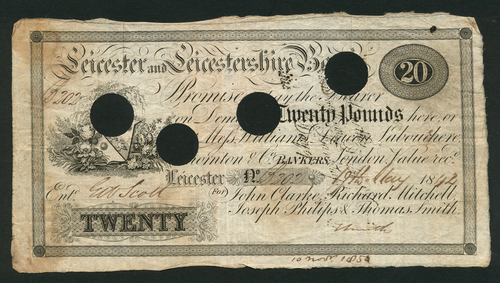 Leicester and Leicestershire
20
Promise pay the Bearer
on Dem Twenty Pounds here, or
at Mess. Williams, Deacon, Labouchere
Thornton & Co. BANKERS, London, value recd.
Leicester No. 2202 19th May 1842
Entd. Geo Scott For John Clarke, Richard Mitchell
TWENTY Joseph Philips & Thomas Smith.
10 Novr. 1854